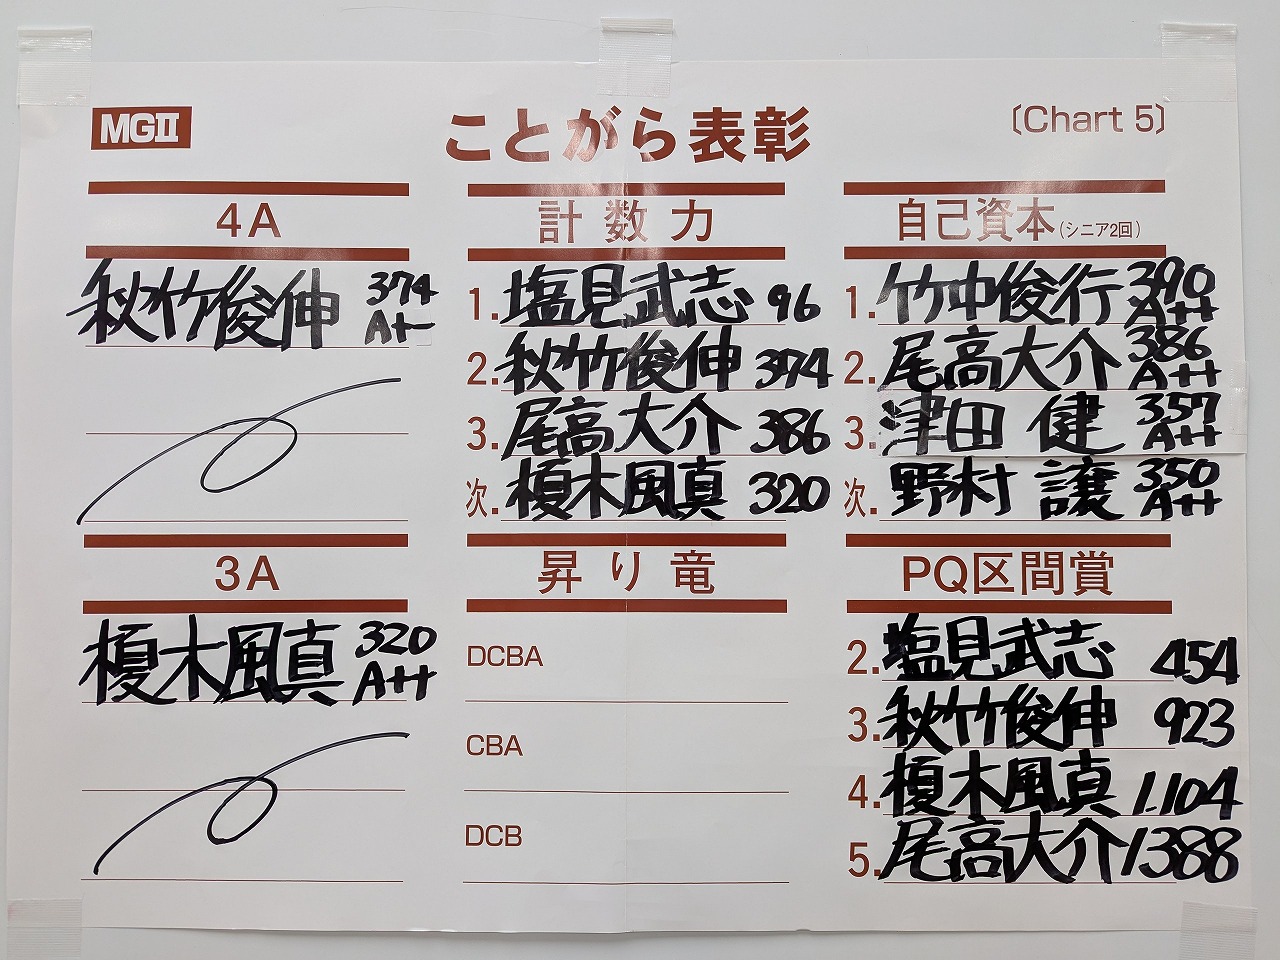 MGⅡ
ことがら表彰
〔Chart 5〕
4A
秋竹俊伸 374 A++
3A
榎木風真 320 A++
計数力
1. 塩見武志 96
2. 秋竹俊伸 374
3. 尾高大介 386
次. 榎木風真 320
昇り竜
DCBA
CBA
DCB
自己資本(シニア2回)
1. 竹中俊行 390 A++
2. 尾高大介 386 A++
3. 津田 健 357 A++
次. 野村 譲 350 A++
PQ区間賞
2. 塩見武志 454
3. 秋竹俊伸 923
4. 榎木風真 1.104
5. 尾高大介 1388